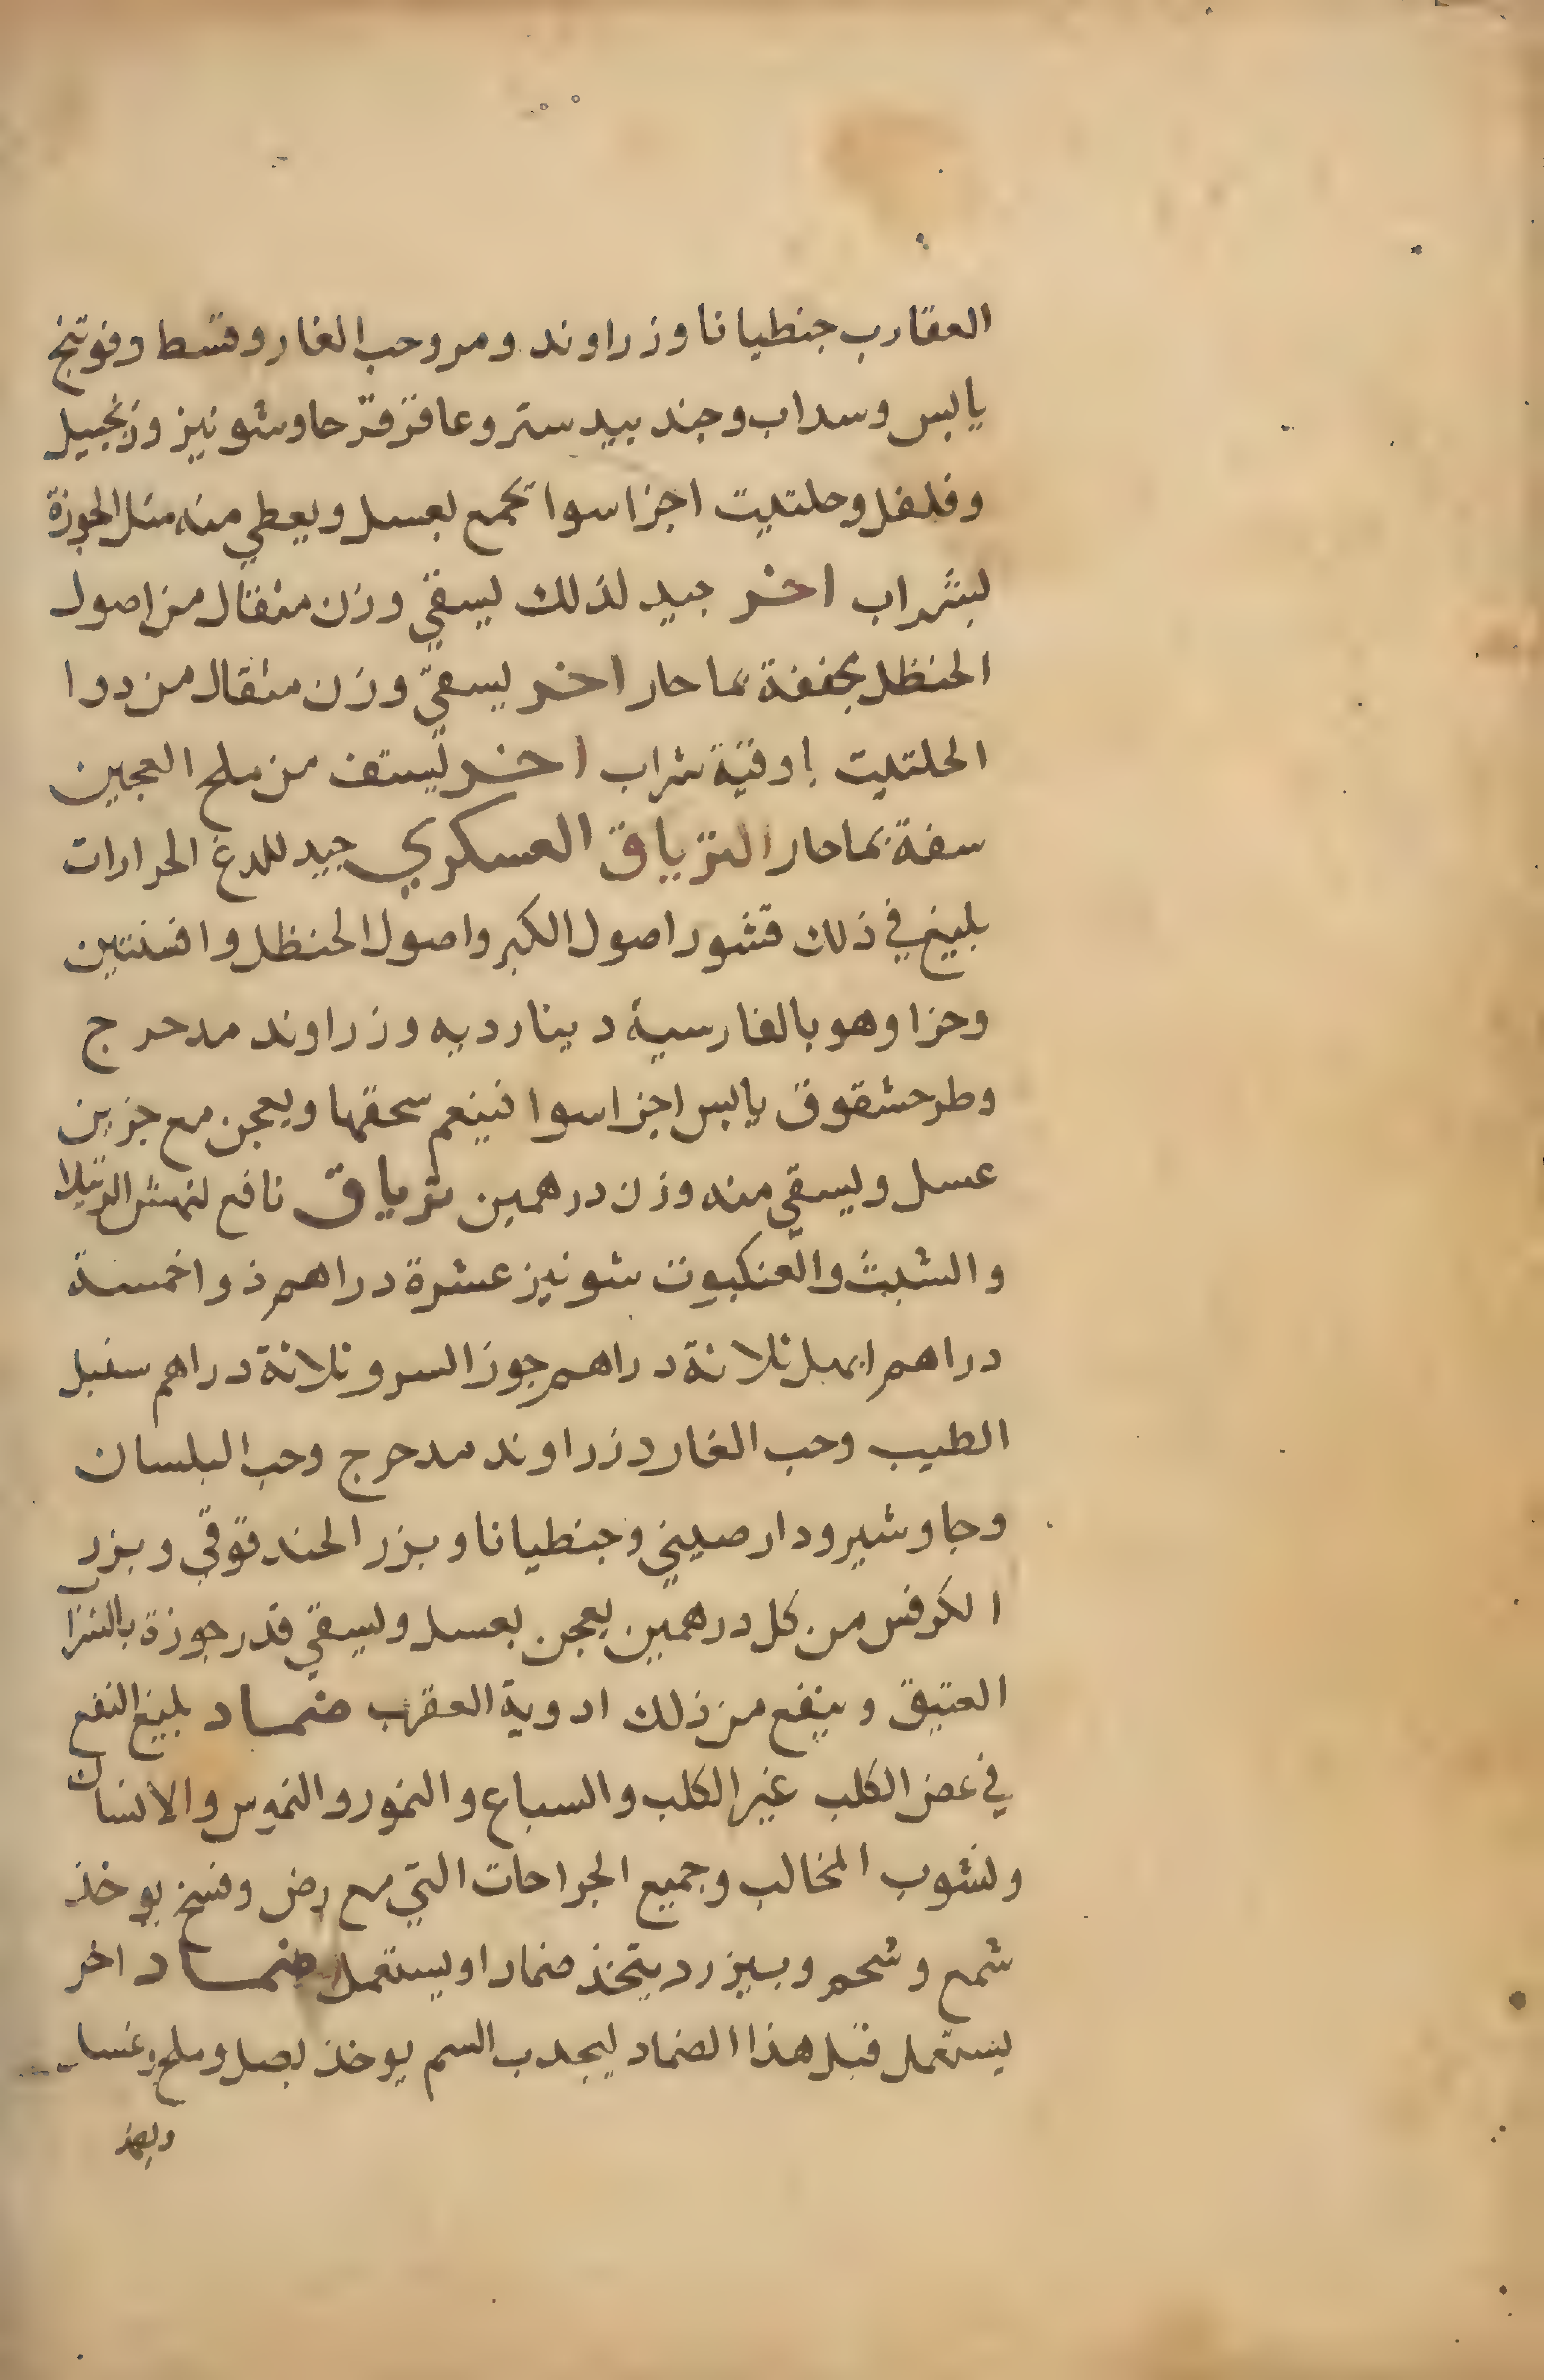 العقارب جنطيانا وزراوند ومر وحب الغار وقسط وفوتنج
يابس وسداب وجند بيدستر وعاقرقرحا وشونيز وزنجبيل
وفلفل وحلتيت اجزا سوا تجمع بعسل ويعطي منه مثل الجوزة
بشراب اخر جيد لذلك يسقي وزن مثقال من اصول
الحنظل مجففة بما حار اخر يسقي وزن مثقال من دوا
الحلتيت باوقية شراب اخر يستف من ملح العجين
سفة بما حار الترياق العسكري جيد للدغ الحرارات
بليغ في ذلك قشور اصول الكبر واصول الحنظل وافسنتين
وحزا وهو بالفارسية دينارديه وزراوند مدحرج
وطرحشقوق يابس اجزا سوا فينعم سحقها ويعجن مع جزين
عسل ويسقي منه وزن درهمين ترياق نافع لنهش الرتيلا
والشبث والعنكبوت شونيز عشرة دراهم ذوا خمسة
دراهم ابهل ثلاثة دراهم جوز السرو ثلاثة دراهم سنبل
الطيب وحب الغار وزراوند مدحرج وحب البلسان
وجاوشير ودارصيني وجنطيانا وبزر الحندقوقي وبزر
الكرفس من كل درهمين يعجن بعسل ويسقي قدر جوزة بالشراب
العتيق وينفع من ذلك ادوية العقرب ضماد بليغ النفع
في عض الكلب غير الكلب والسباع والنمور والنموس والانسان
ونشوب المخالب وجميع الجراحات التي مع رض وفسخ يوخذ
شمع وشحم وبيزرد يتخذ ضمادا ويستعمل ضماد اخر
يستعمل قبل هذا الضماد ليجدب السم يوخذ بصل وملح وعسل